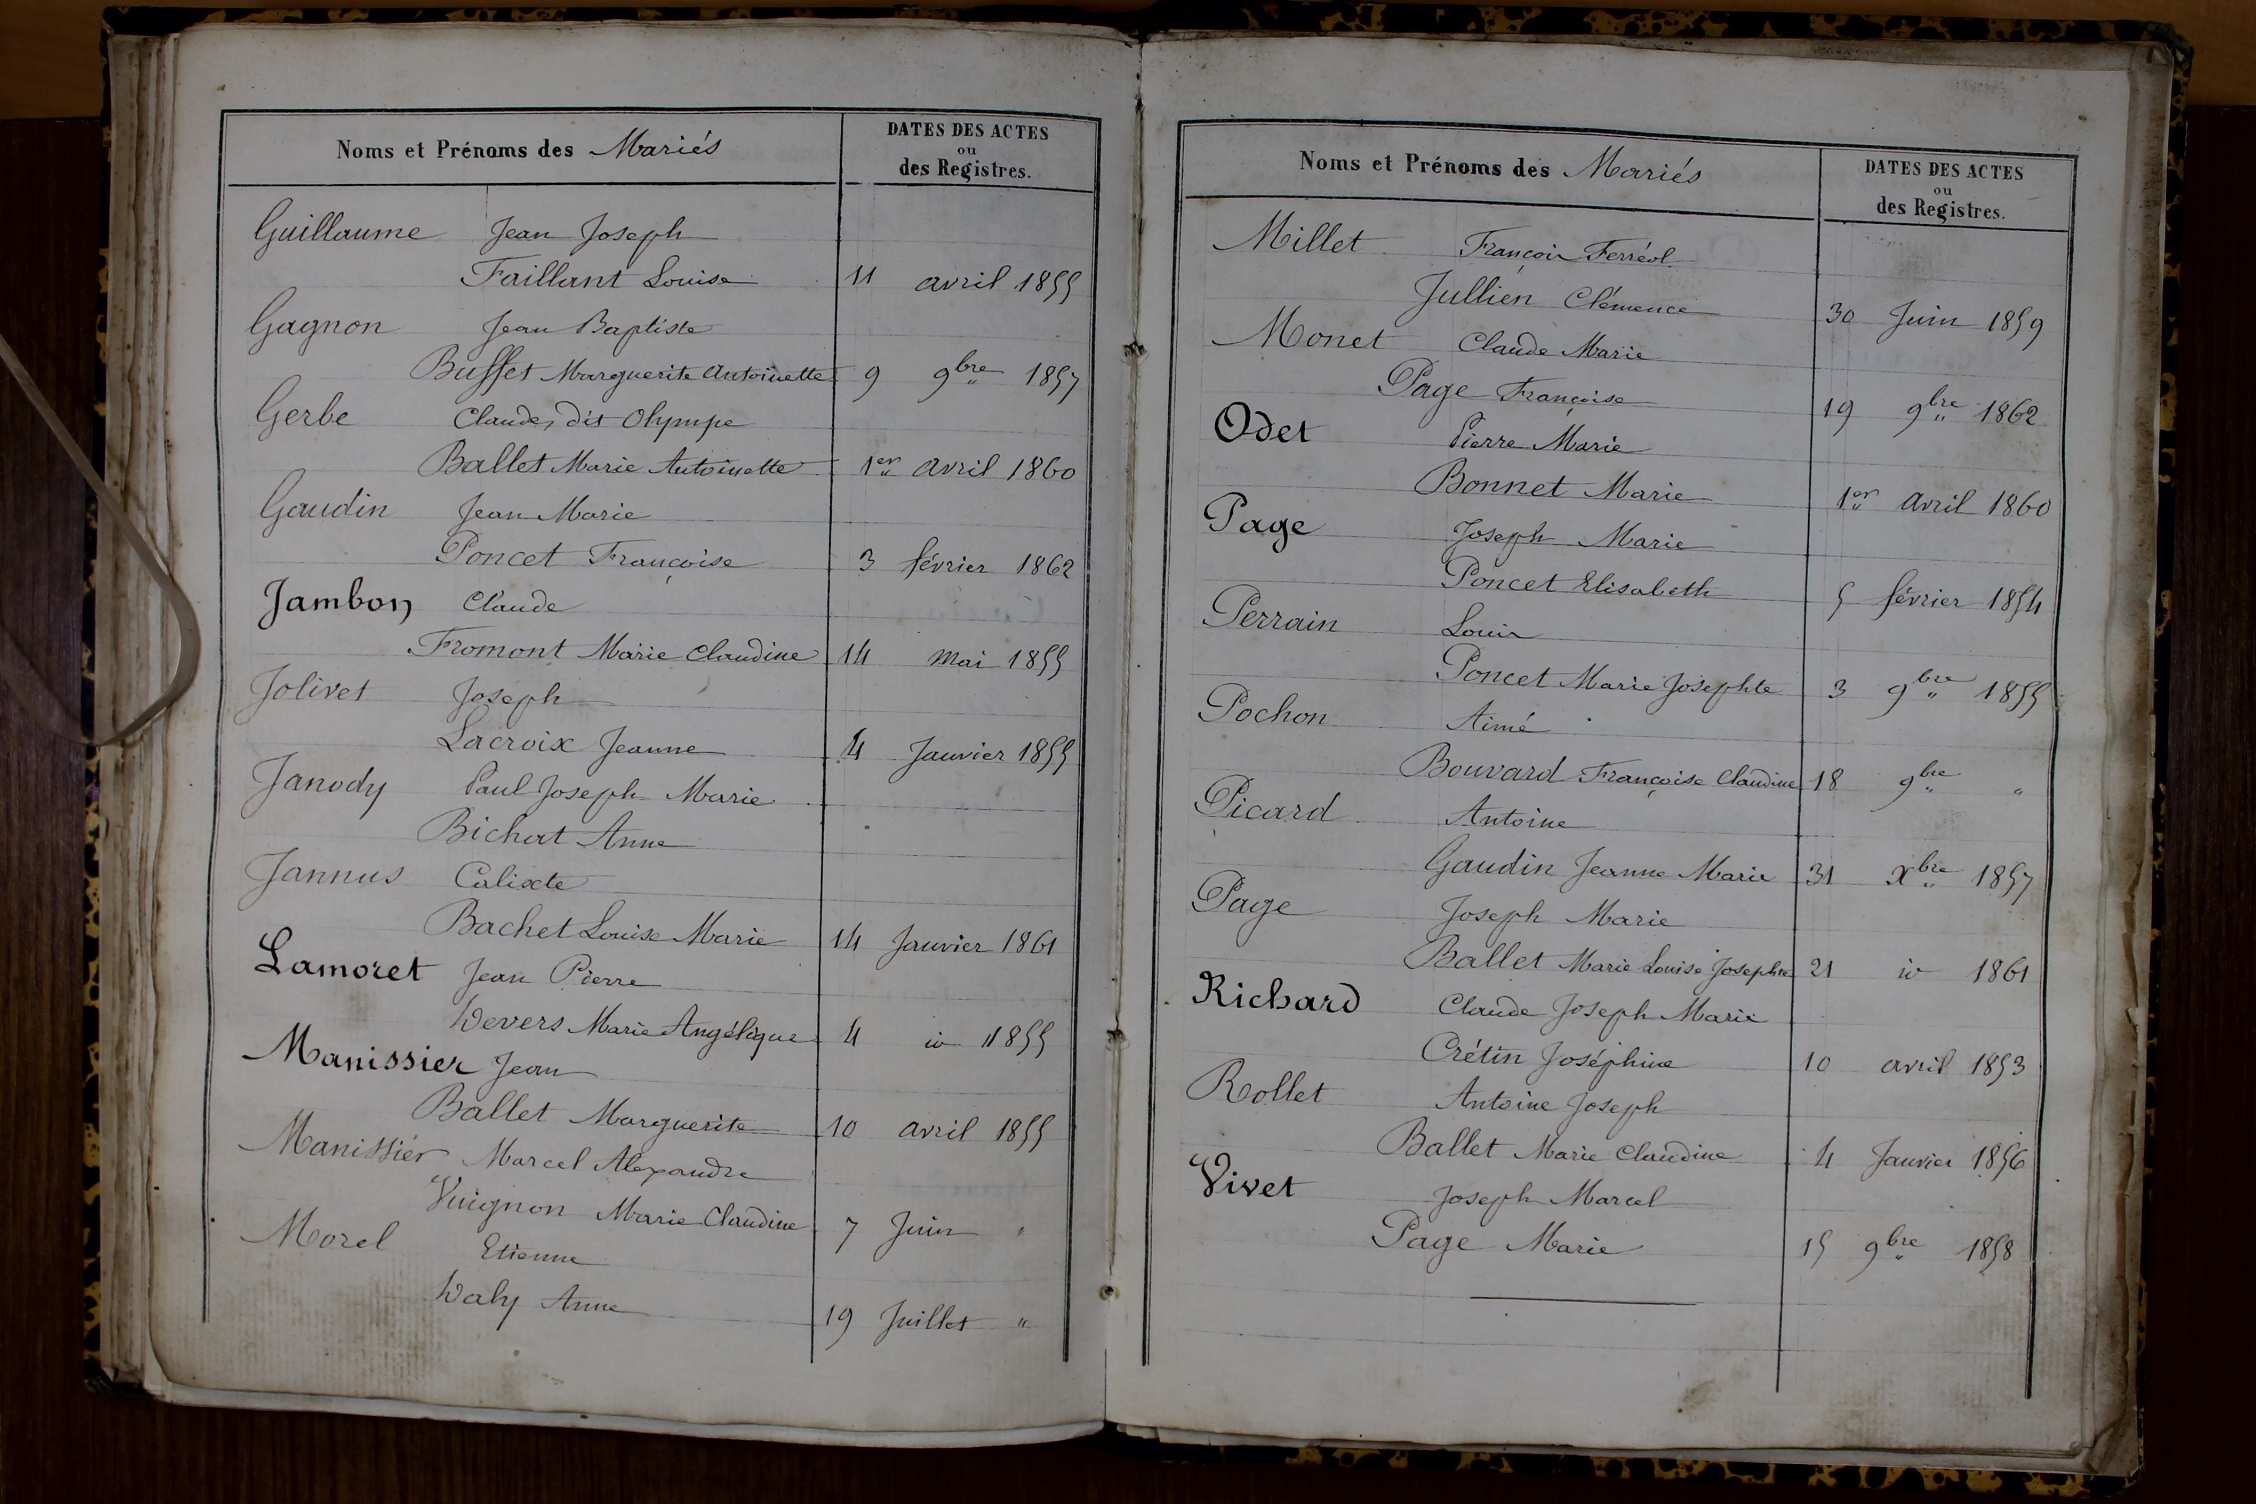 Noms et Prénoms des Mariés
DATES DES ACTES
ou
des Registres.
Guillaume Jean Joseph
Faillant Louise 11 avril 1855
Gagnon Jean Baptiste
Buffet Marguerite Antoinette 9 9bre 1857
Gerbe Claude, dit Olympe
Ballet Marie Antoinette 1er avril 1860
Gaudin Jean Marie
Poncet Françoise 3 février 1862
Jambon Claude
Fromont Marie Claudine 14 mai 1855
Jolivet Joseph
Lacroix Jeanne 4 Janvier 1855
Janody Paul Joseph Marie
Bichat Anne
Jannus Calixte
Bachet Louise Marie 14 Janvier 1861
Lamoret Jean Pierre
Devers Marie Angélique 4 id 1855
Manissier Jean
Ballet Marguerite 10 avril 1855
Manissier Marcel Alexandre
Vuignon Marie Claudine 7 Juin "
Morel Etienne
Daly Anne 19 Juillet "
Noms et Prénoms des Mariés
DATES DES ACTES
ou
des Registres.
Millet François Ferréol
Jullien Clémence 30 Juin 1859
Monet Claude Marie
Page Françoise 19 9bre 1862
Odet Pierre Marie
Bonnet Marie 1er avril 1860
Page Joseph Marie
Poncet Elisabeth 5 février 1854
Perrain Louis
Poncet Marie Josephte 3 9bre 1855
Pochon Aimé
Bouvard Françoise Claudine 18 9bre "
Picard Antoine
Gaudin Jeanne Marie 31 Xbre 1857
Page Joseph Marie
Ballet Marie Louise Josephte 21 id 1861
Richard Claude Joseph Marie
Crétin Joséphine 10 avril 1853
Rollet Antoine Joseph
Ballet Marie Claudine 4 Janvier 1856
Vivet Joseph Marcel
Page Marie 15 9bre 1858